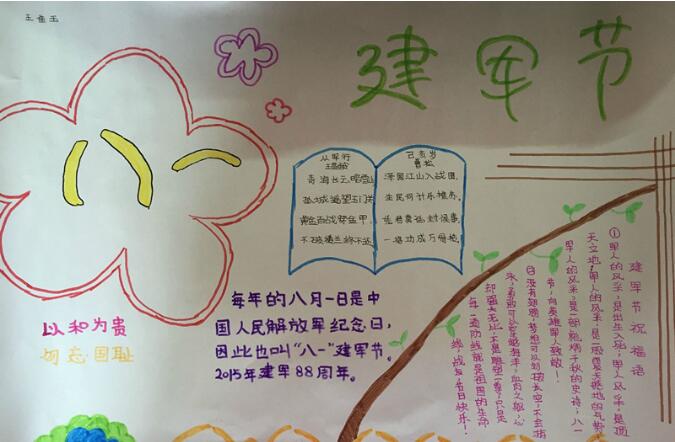 王鱼玉
建军节
八一
从军行
王昌龄
青海长云暗雪山
孤城遥望玉门关
黄金百战穿金甲
不破楼兰终不还
己亥岁
曹松
泽国江山入战图
生民何计乐樵
凭君莫话封侯事
一将功成万骨枯
每年的八月一日是中
国人民解放军纪念日，
因此也叫“八一”建军节。
2015年建军88周年。
以和为贵
勿忘国耻
建军节祝福语
①军人的风采，是出生入死；军人风采，是顶
天立地；军人的风采，是
军人的风采，是一部
节，向英雄军人致敬！
没有翅膀，梦想可以划
却强大无比；不是雕塑
每一道防线就是祖国的生命
线，战友，节日快乐！